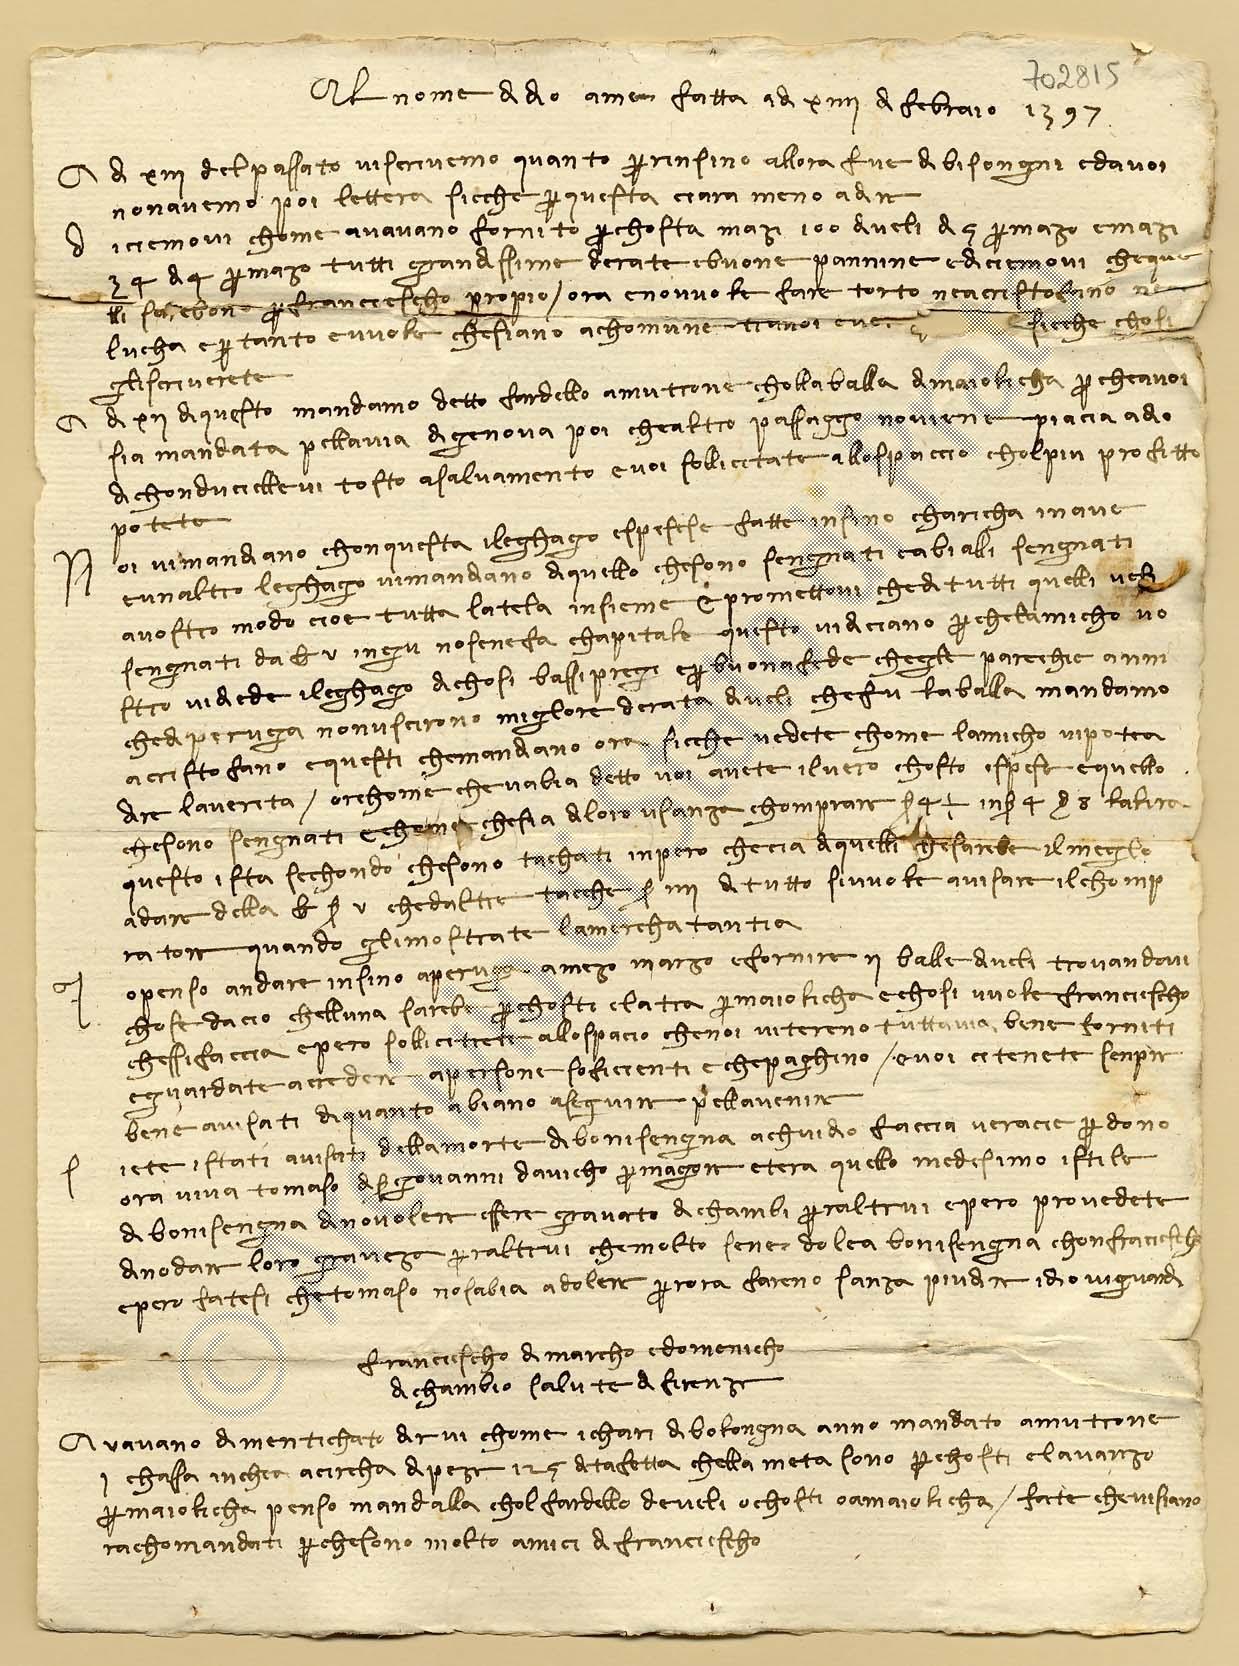 702815
Al nome di dio amen fatta a di xiiii di febraio 1397
A di xiii del passato vi scrivemo quanto per insino allora fue di bisongni e da voi
non avemo poi lettera sicche per questa ciara meno a dire
Diciemovi chome avavano fornito per chosta mazi 100 di veli di 5 per mazo e mazi
34 di 4 per mazo tutti grandissime derate e buone pannine e diciemovi che que
lli sarebono per franciescho propio / ora e non vole fare torto ne a cristofano ne
lucha e per tanto e vuole che siano a chomune tra voi e sicche chosi
gli scriverete
A di xii di questo mandamo detto fardello a mutrone cholla balla di maiolicha per che a voi
sia mandata pella via di genova poi che altro passaggo no viene piacia a dio
di chonduciellevi tosto a salvamento e voi sollicitate allo spaccio chol piu profitto
potete
Noi vi mandiano chon questa il leghagio e spese fatte insino charicha in ave
e un altro leghagio vi mandano di quello che sono sengnati e abialli sengnati
a vostro modo cioe tutta la tela insieme e promettovi che di tutti quelli veli
sengnati da lb v in giu no se ne fa chapitale questo vi diciano per che l amicho vo
stro vi diede il leghagio di chosi bassi pregi e per buona fede ch egle parechie anni
che di perugia non uscirono migliore derata di veli che fu la balla mandamo
a cristofano e questi che mandiano ora sicche vedete chome l amicho vi potea
dire la verita / or chome che v abia detto voi avete il vero chosto e spese e quello
che sono sengnati e chome che sia di loro usanza chomprare s 4 ½ in s 4 d 8 la lira
questo ista sechondo che sono tachati inpero che cia di quelli che sarebe il meglio
a dare della lb s v che d altre tacche s iiii di tutto si vuole avisare il chomp
ratore quando gli mostrate la merchatantia
Io penso andare insino a perugia a mezo marzo e fornire ii balle di veli trovandovi
chose da cio che ll una sarebe per chosti e l atra per maiolicha e chosi vuole franciescho
che ssi faccia e pero sollicitrete allo spacio che noi vi tereno tuttavia bene forniti
e guardate a credere a persone soficienti e che paghino / e voi ci tenete senpre
bene avisati di quanto abiano a seguire pell avenire
Siete istati avisati della morte di bonisengna a chui dio faccia veracie perdono
ora viva tomaso di ser giovanni da vicho per magiore e tera quello medesimo istile
di bonisengna di no volere essere gravato di chambi per altrui e pero provedete
di no dare loro graveza per altrui che molto se ne dolea bonisengna chon franciescho
e pero fate si che tomaso no s abia a dolere per ora fareno sanza piu dire idio vi guardi
franciescho di marcho e domenicho
di chambio salute di firenze
Avavano dimentichato dirvi chome i chari di bolongna anno mandato a mutrone
1 chassa in che a circha di peze 125 di tafetta che lla meta sono per chosti e l avanzo
per maiolicha penso mandalla chol fardello de veli o chosti o a maiolicha / fate che vi siano
rachomandati per che sono molto amici di franciescho